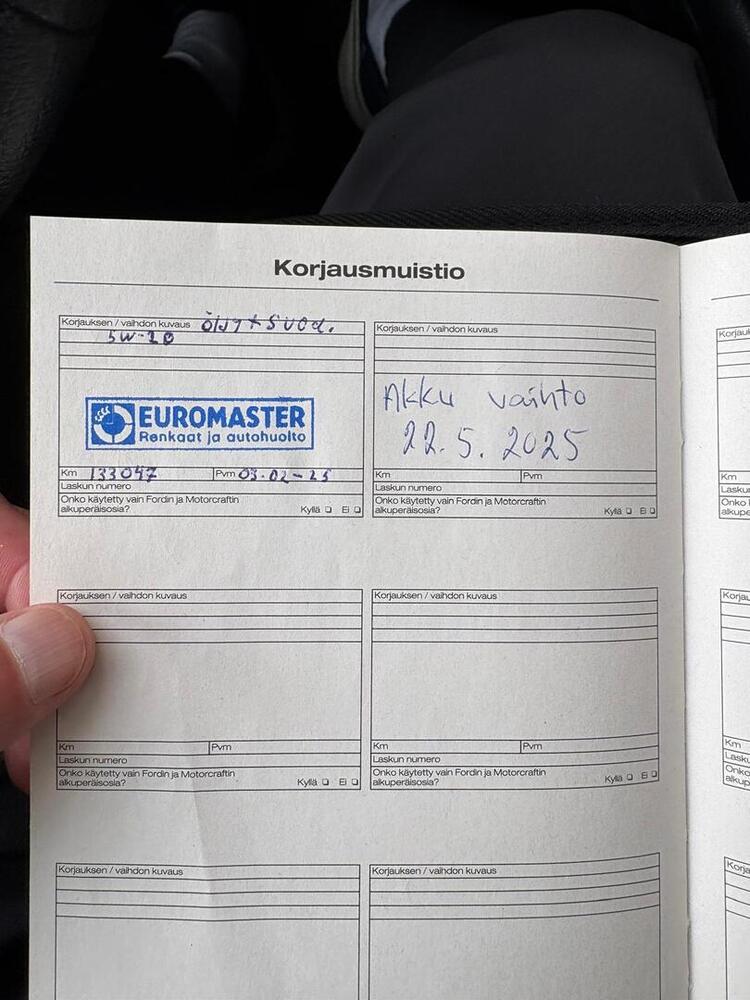 Korjausmuistio
Korjauksen / vaihdon kuvaus öljyt + suod.
5W-20
EUROMASTER
Renkaat ja autohuolto
Km 133047 Pvm 03-02-25
Laskun numero
Onko käytetty vain Fordin ja Motorcraftin
alkuperäisosia? Kyllä ❏ Ei ❏
Korjauksen / vaihdon kuvaus
Akku vaihto
22.5.2025
Km Pvm
Laskun numero
Onko käytetty vain Fordin ja Motorcraftin
alkuperäisosia? Kyllä ❏ Ei ❏
Korjauksen / vaihdon kuvaus
Km Pvm
Laskun numero
Onko käytetty vain Fordin ja Motorcraftin
alkuperäisosia? Kyllä ❏ Ei ❏
Korjauksen / vaihdon kuvaus
Km Pvm
Laskun numero
Onko käytetty vain Fordin ja Motorcraftin
alkuperäisosia? Kyllä ❏ Ei ❏
Korjauksen / vaihdon kuvaus
Korjauksen / vaihdon kuvaus
Km
Onko
Km